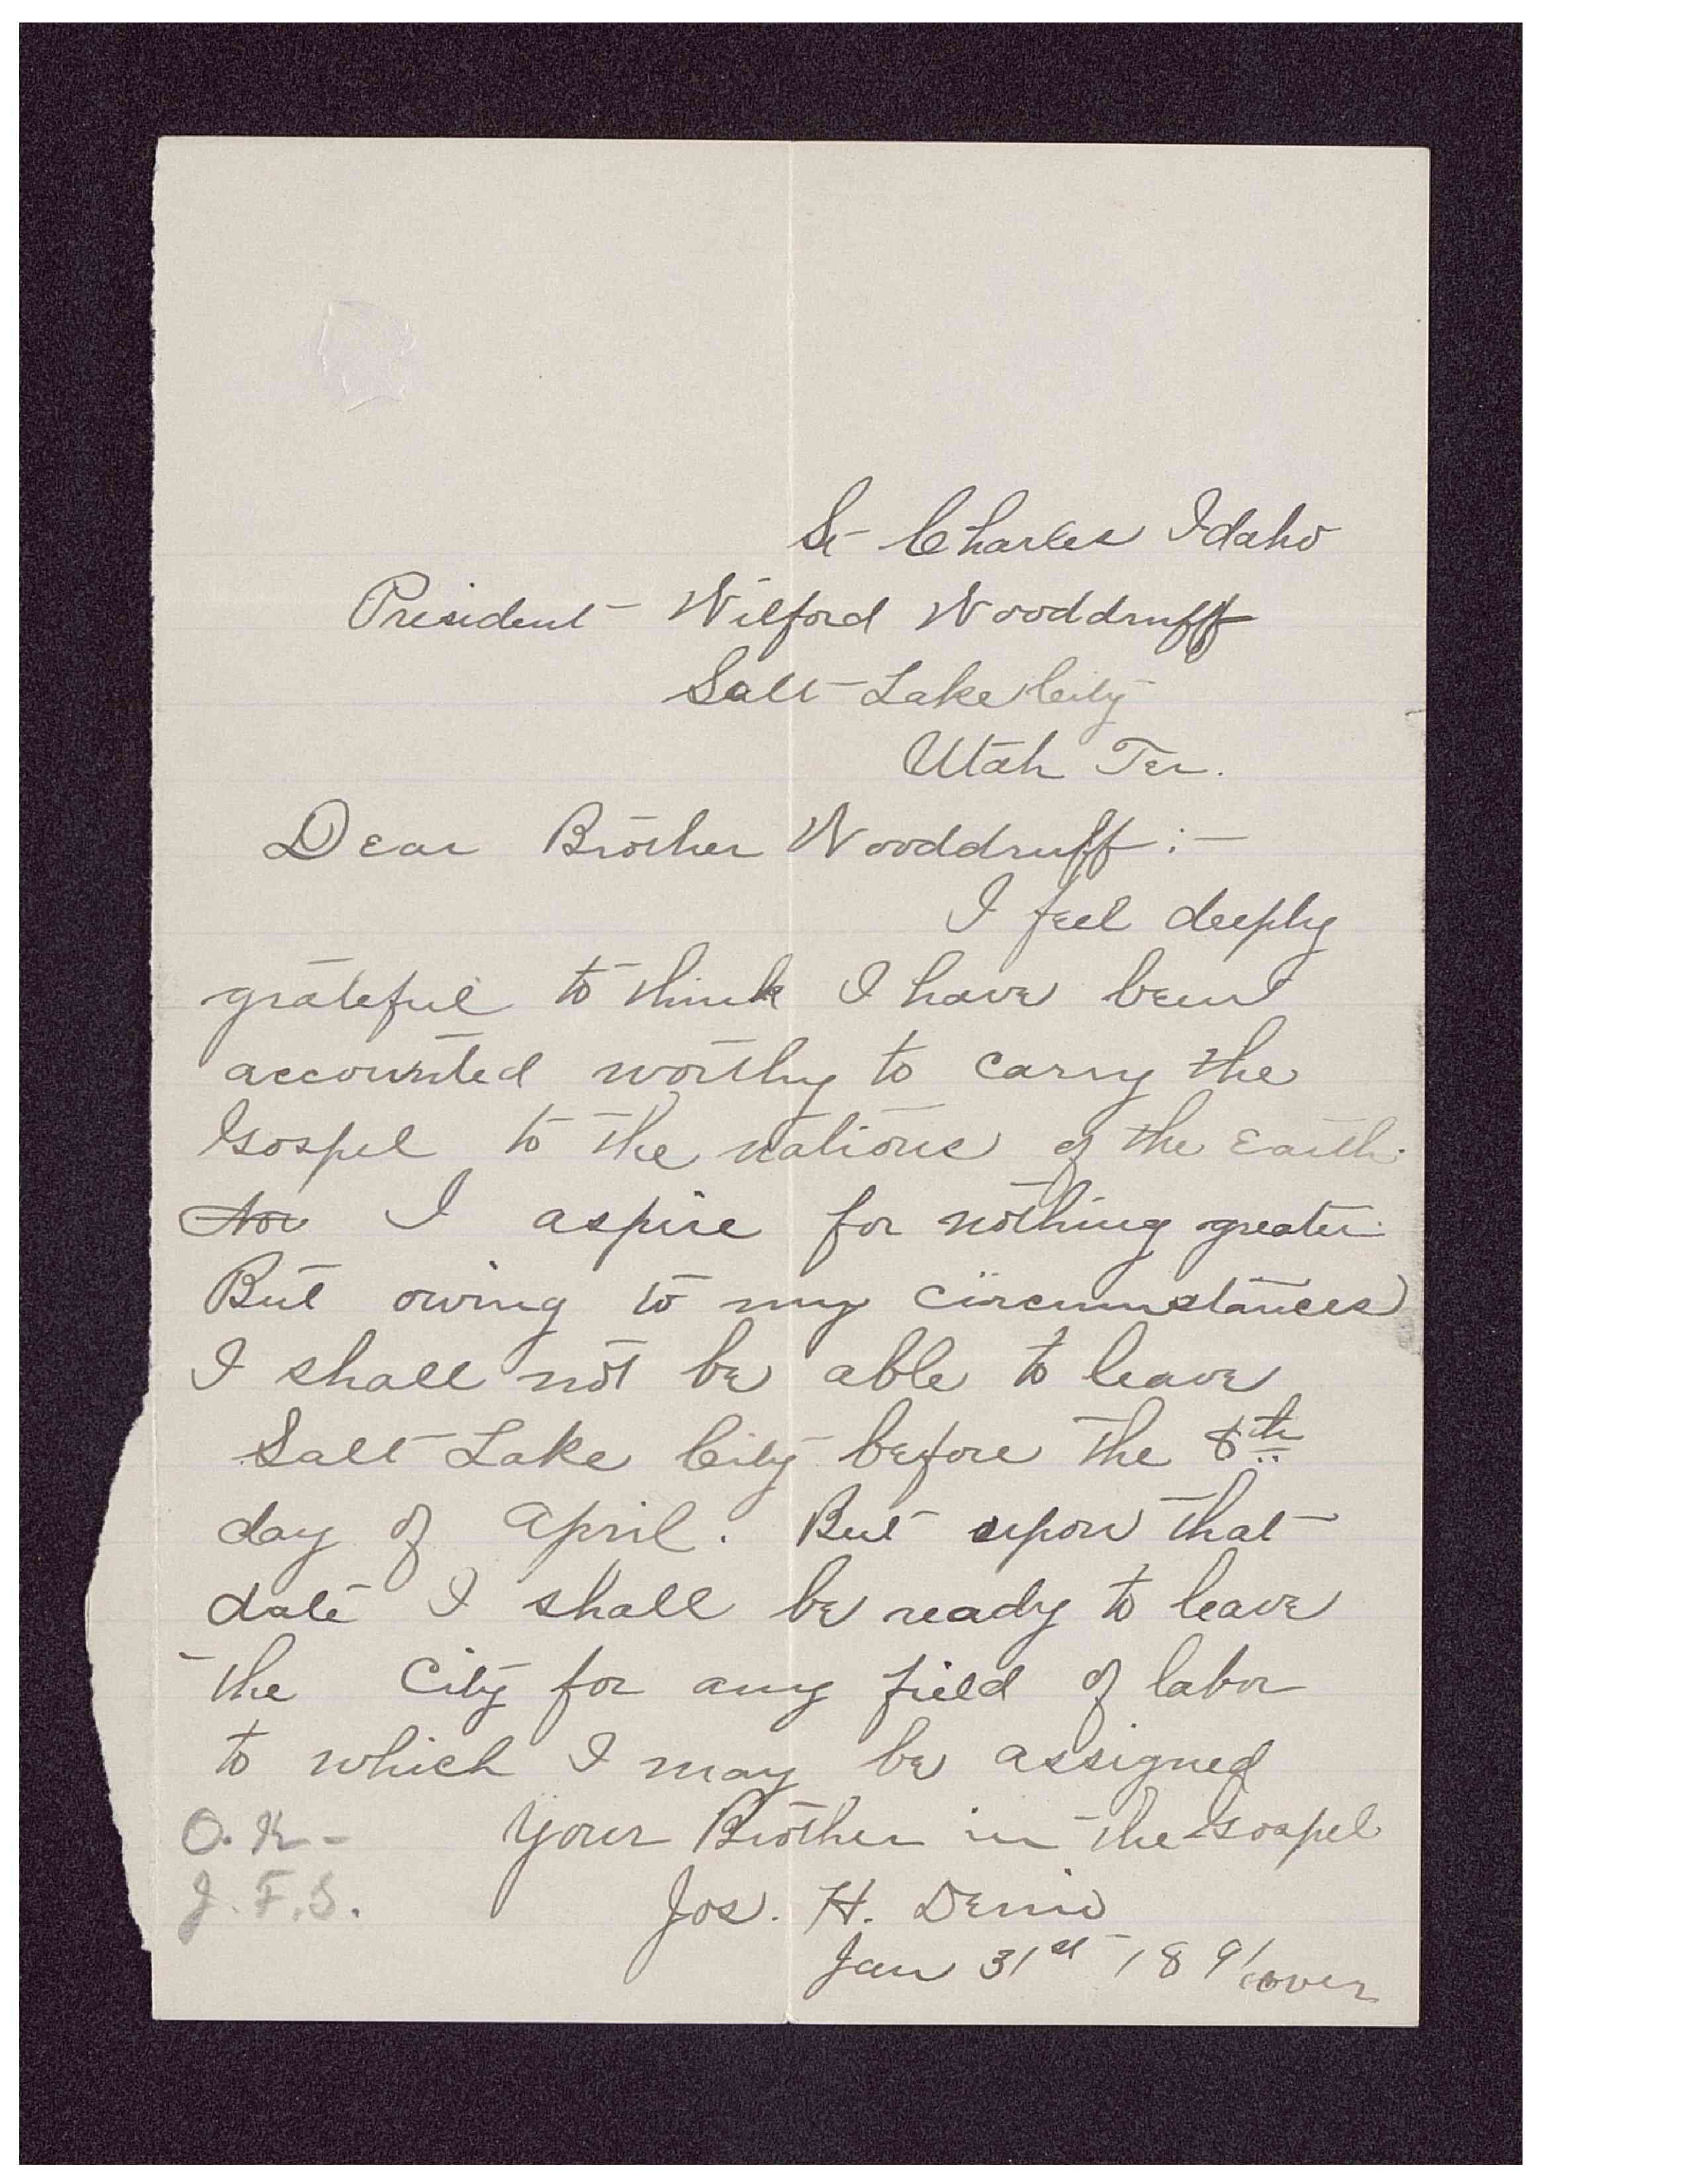 St Charles Idaho
President Wilford Wooddruff
Salt Lake City
Utah Ter.
Dear Brother Wooddruff:—
I feel deeply
grateful to think I have been
accounted worthy to carry the
Gospel to the nations of the Earth.
Nor I aspire for nothing greater.
But owing to my circumstances
I shall not be able to leave
Salt Lake City before the 8th
day of April. But upon that
date I shall be ready to leave
the City for any field of labor
to which I may be assigned
Your Brother in the Gospel
O. K—
Jos. H.
J. F. S.
Jan 31st 1891
over